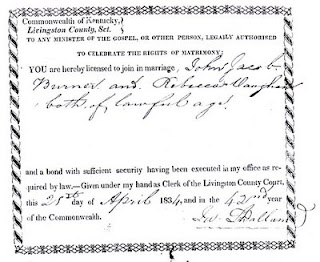 Commonwealth of Kentucky,
Livingston County, Sct.
TO ANY MINISTER OF THE GOSPEL, OR OTHER PERSON, LEGALLY AUTHORISED
TO CELEBRATE THE RIGHTS OF MATRIMONY:
YOU are hereby licensed to join in marriage, John Jacob
Burnes and Rebecca Vaughan
both of lawful age.
and a bond with sufficient security having been executed in my office as re-
quired by law.—Given under my hand as Clerk of the Livingston County Court,
this 25th day of April 1834, and in the 42nd year
of the Commonwealth.